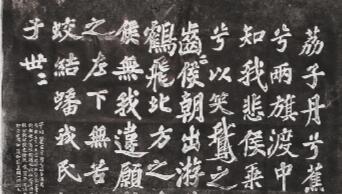 荔子丹兮蕉
兮兩旗渡中
知我悲侯乘
兮以笑鵝之
齒侯朝出游
鶴飛北方之
侯無我違願
之左下無苦
蛟結蟠我民
子世〻